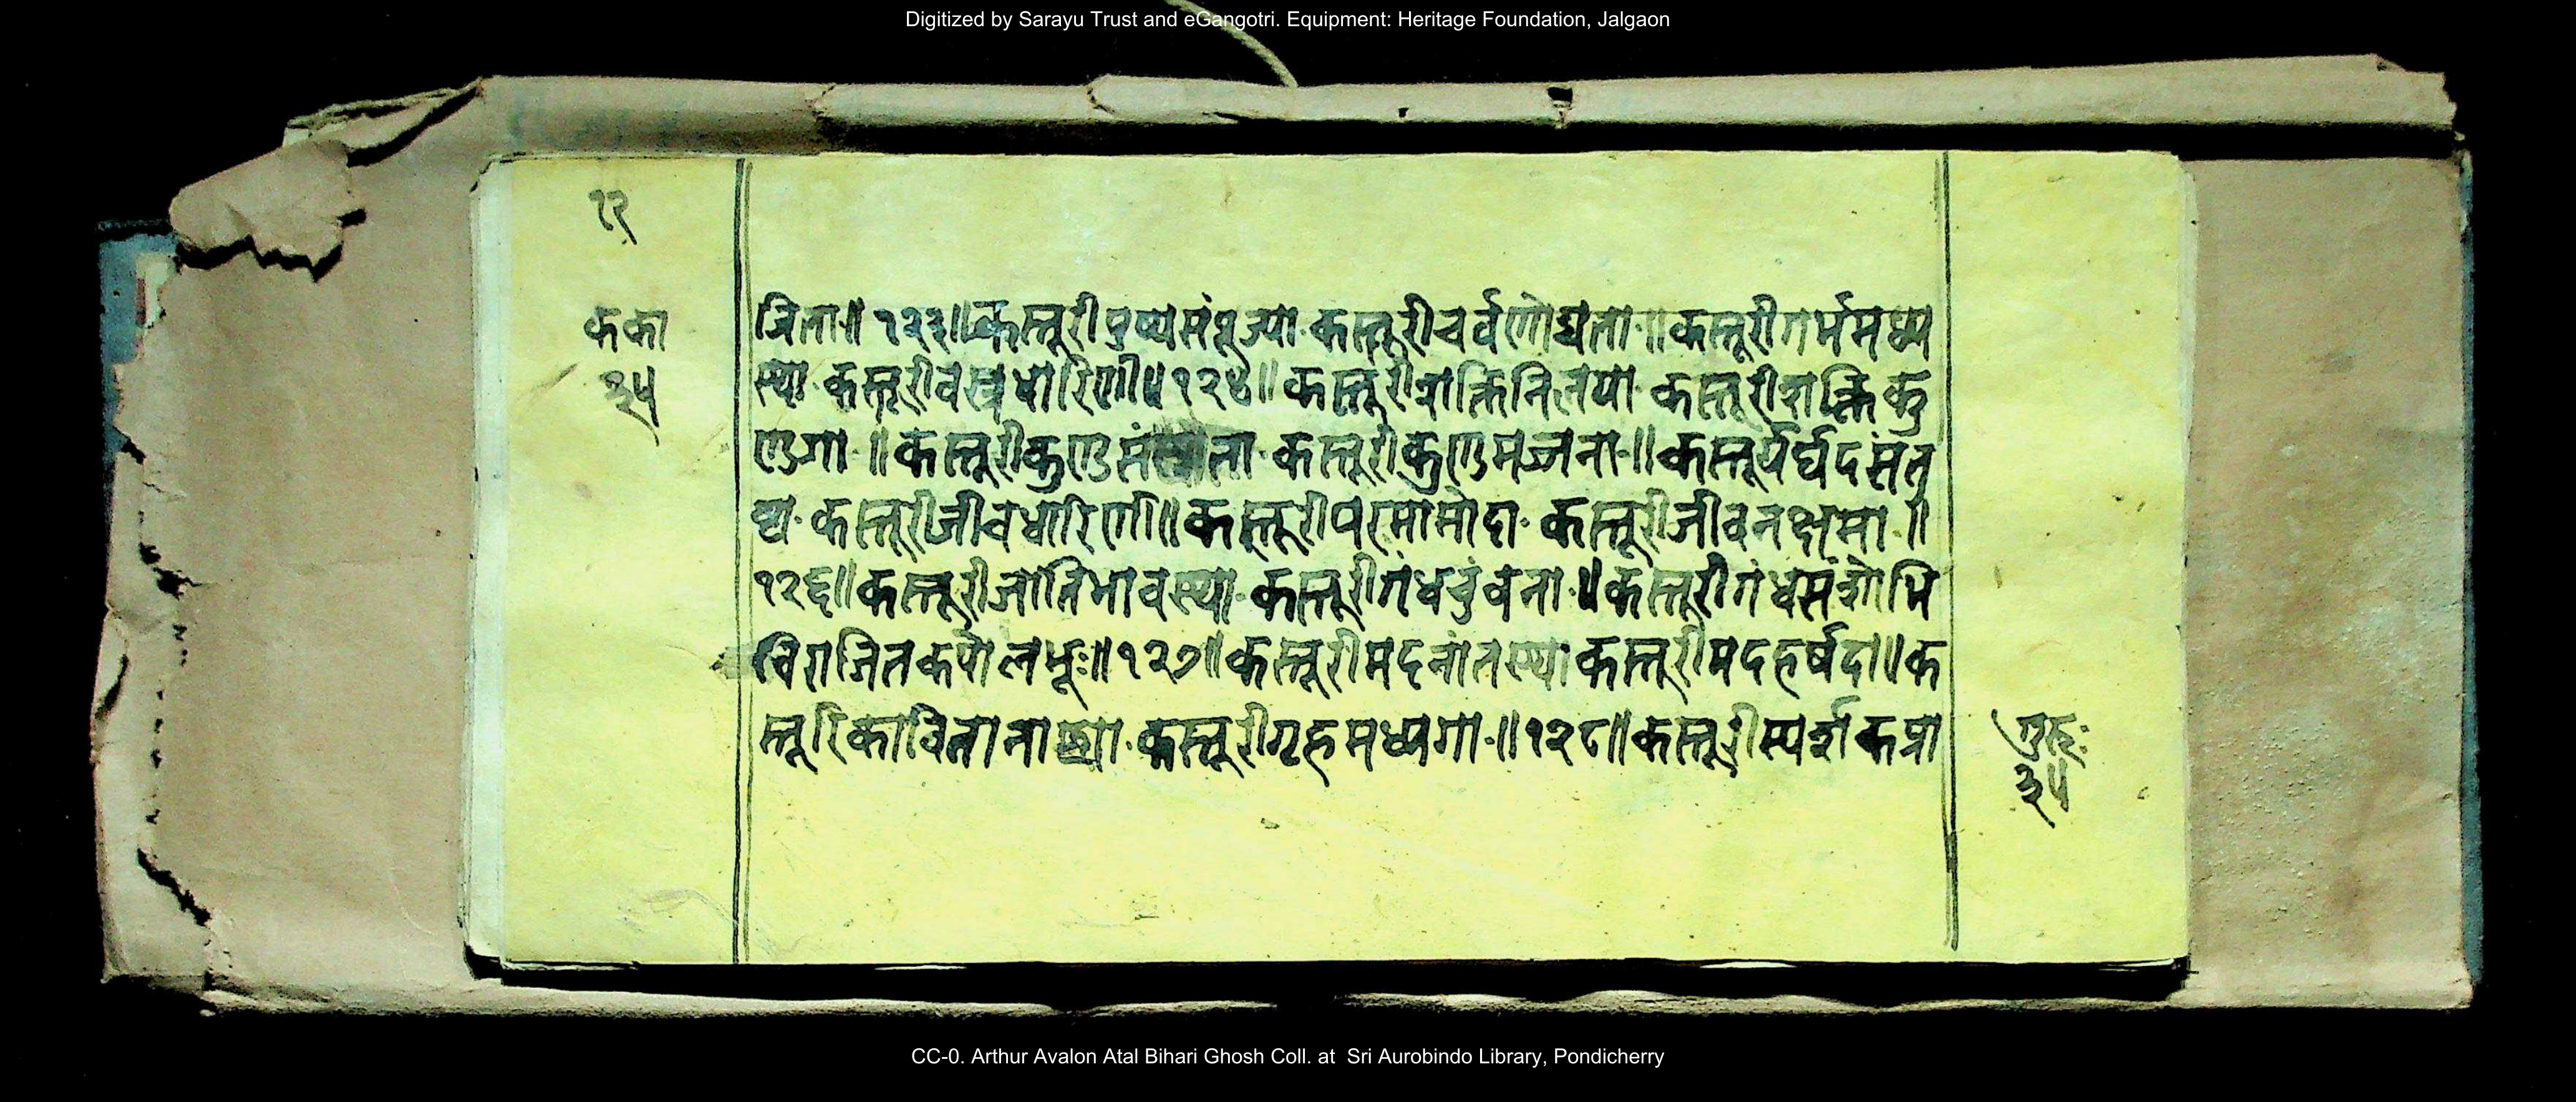 Digitized by Sarayu Trust and eGangotri. Equipment: Heritage Foundation, Jalgaon
१२
कका
३५
त्रिता॥ १२३॥ कस्तूरीपुष्पसंपूज्या कस्तूरीचर्वणोद्यता॥ कस्तूरीगर्भमध्य
स्था कस्तूरीवस्त्रधारिणी॥ १२४॥ कस्तूरी कस्तूरीशक्तिकु
ण्डगा॥ कस्तूरीकुण्ड कस्तूरीकुण्डमज्जना॥
कस्तूरीजीवधारिणी॥ कस्तूरीपरमामोदा कस्तूरीजीवनक्षमा॥
१२६॥ कस्तूरीजातिभावस्था कस्तूरीगंधचुंबना॥ कस्तूरीगंधसंशोभि
विराजितकपोलभूः॥ १२७॥ कस्तूरीमदनांतस्था कस्तूरीमदहर्षदा॥ क
स्तूरिकावितानाढ्या कस्तूरीगृहमध्यगा॥ १२८॥ कस्तूरीस्पर्शकप्रा
गुरुः
३५
CC-0. Arthur Avalon Atal Bihari Ghosh Coll. at Sri Aurobindo Library, Pondicherry